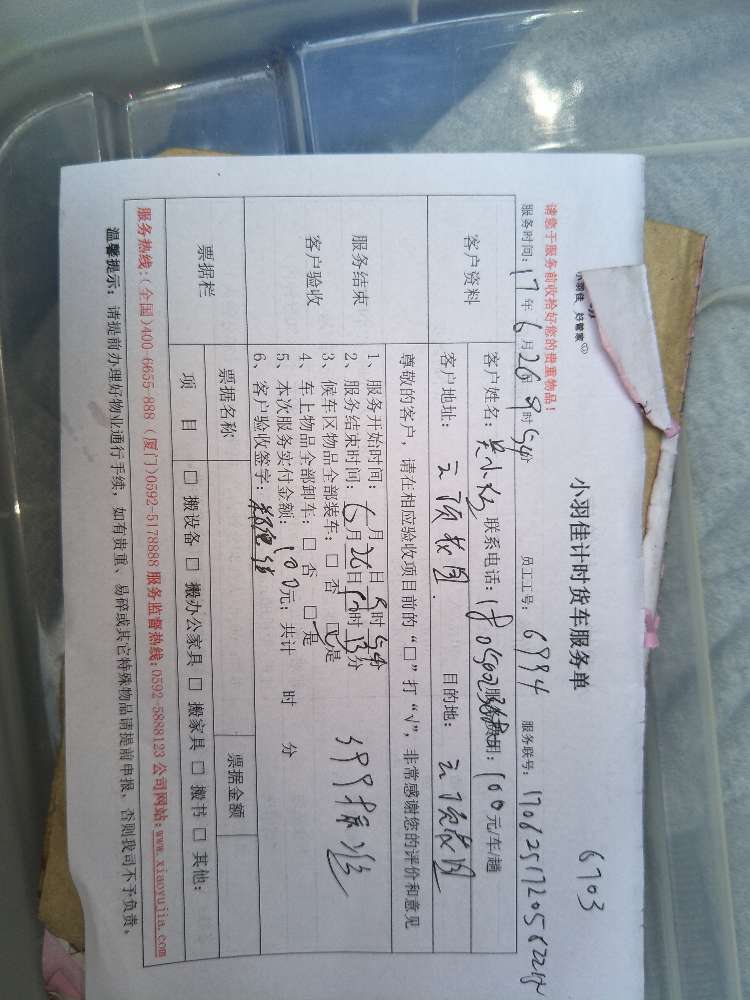 小羽佳 好管家
小羽佳计时货车服务单
6703
请您于服务前收拾好您的贵重物品！
服务时间：17年6月26日9时54分 员工工号：6994 服务联号：
客户资料
客户姓名：吴小 联系电话： 服务费用：100元/车/趟
客户地址：云顶 目的地：云顶
服务结束
客户验收
尊敬的客户，请在相应验收项目前的“□”打“√”，非常感谢您的评价和意见
1、服务开始时间： 月 日9时54分
2、服务结束时间：6月26日10时13分
3、候车区物品全部装车：□ 否 是
4、车上物品全部卸车：□ 否 □是
5、本次服务实付金额：100元；共计 时 分
6、客户验收签字：
票据栏
票据名称 票据金额
项 目 □ 搬设备 □ 搬办公家具 □ 搬家具 □ 搬书 □ 其他：
服务热线：(全国)400-6655-888 (厦门)0592-5178888 服务监督热线：0592-5888123 公司网站：www.xiaoyujia.com
温馨提示：请提前办理好物业通行手续，如有贵重、易碎或其它特殊物品请提前申报，否则我司不予负责。